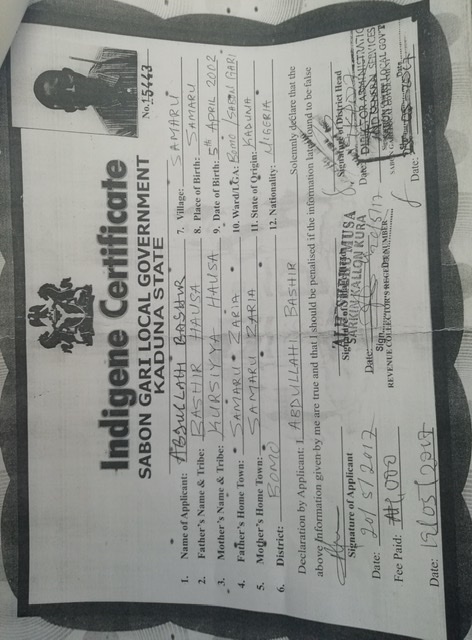 No. 15443
Indigene Certificate
SABON GARI LOCAL GOVERNMENT
KADUNA STATE
1. Name of Applicant: ABDULLAHI BASHIR
2. Father's Name & Tribe: BASHIR HAUSA
3. Mother's Name & Tribe: KURSIYYA HAUSA
4. Father's Home Town: SAMARU ZARIA
5. Mother's Home Town: SAMARU ZARIA
6. District: BOMO
7. Village: SAMARU
8. Place of Birth: SAMARU
9. Date of Birth: 5th APRIL 2002
10. Ward/LGA: BOMO /SABON GARI
11. State of Origin: KADUNA
12. Nationality: NIGERIA
Declaration by Applicant: I ABDULLAHI BASHIR Solemnly declare that the
above information given by me are true and that I should be penalised if the information later found to be false
Signature of Applicant
Date: 20/5/2017
Fee Paid: ₦1,000
Date:
MUSA
SARKIN KALLON KURA
Date: 20/5/17
Sign
REVENUE COLLECTOR'S REGD NUMBER
Signature of District Head
DIRECTOR ADMINISTRATION
AND GENERAL SERVICES
SABON GARI LOCAL GOVT
Date: